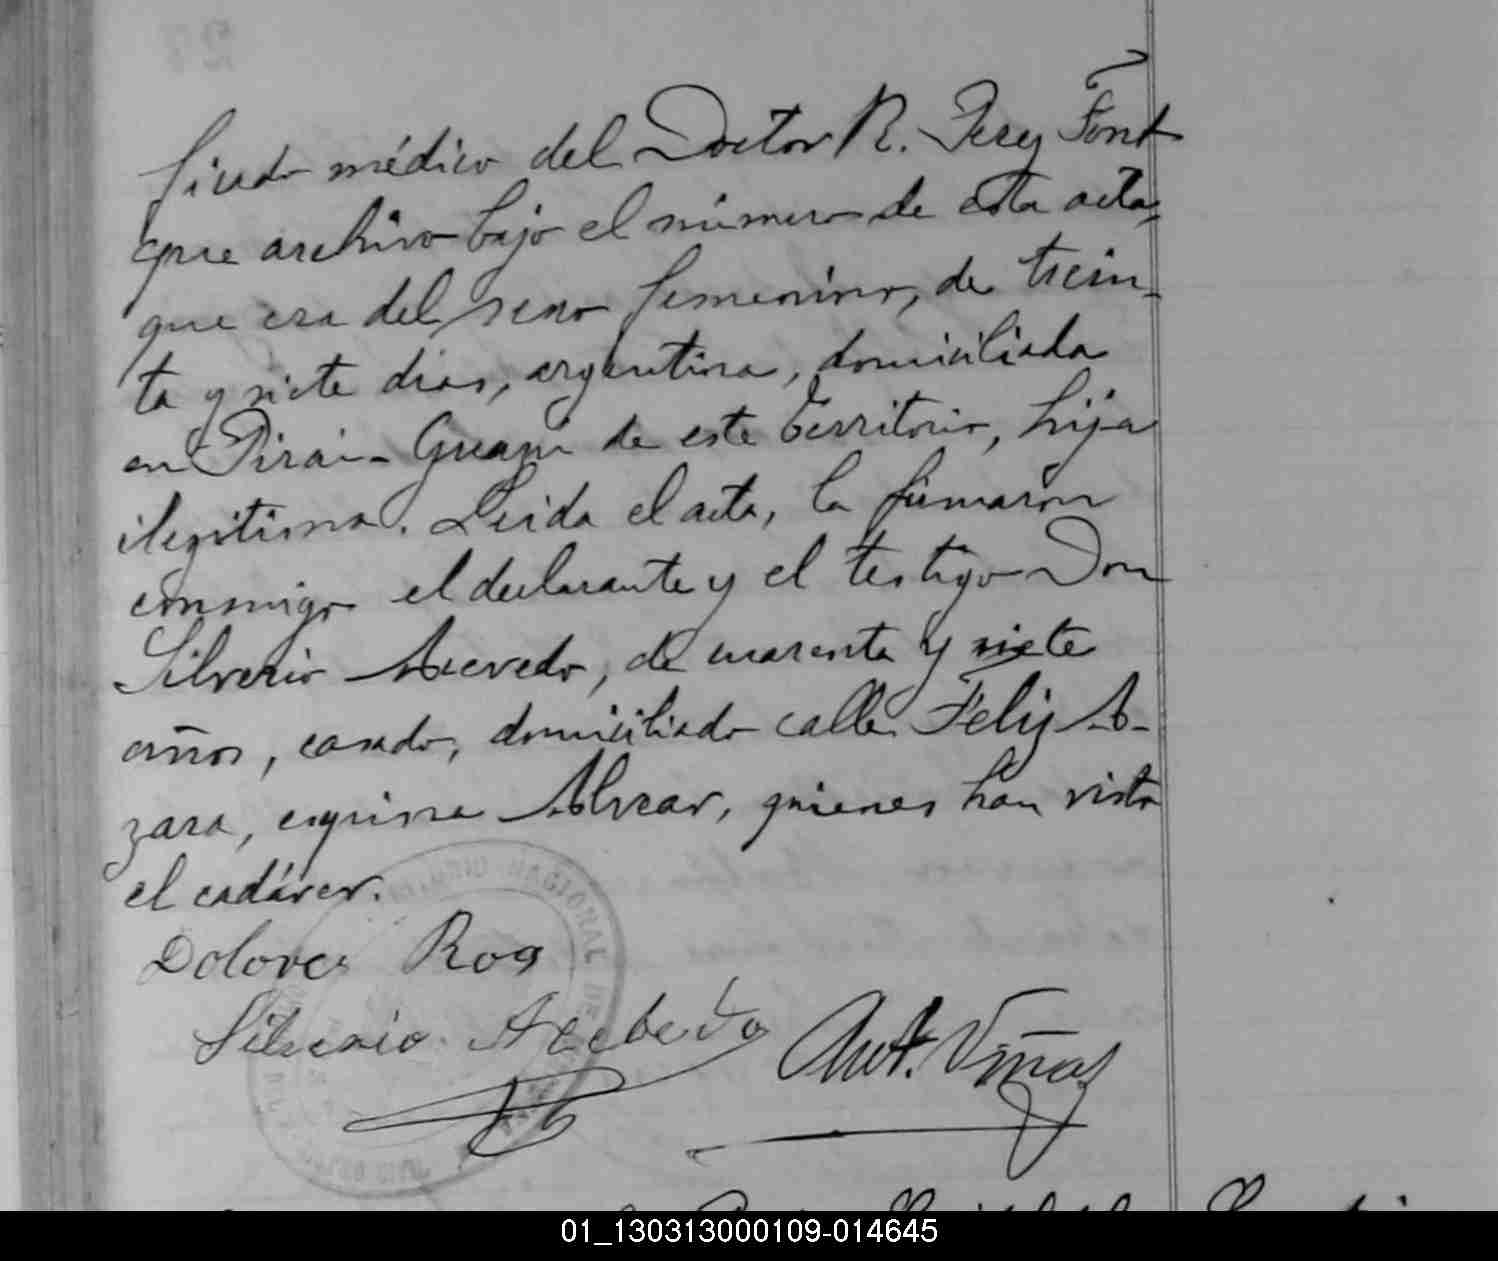 ficado médico del Doctor R. Perez Font
que archivo bajo el número de esta acta,
que era del sexo femenino, de trein-
ta y siete dias, argentina, domiciliada
en Pirai-Guazú de este territorio, hija
ilegitima. Leida el acta, la firmaron
conmigo el declarante y el testigo Don
Silverio Acevedo, de cuarenta y siete
años, casado, domiciliado calle Feliz A-
zara, esquina Alvear, quienes han visto
el cadáver.
Dolores Roa
Silverio Acebedo
Ant. Viñas
01_130313000109-014645